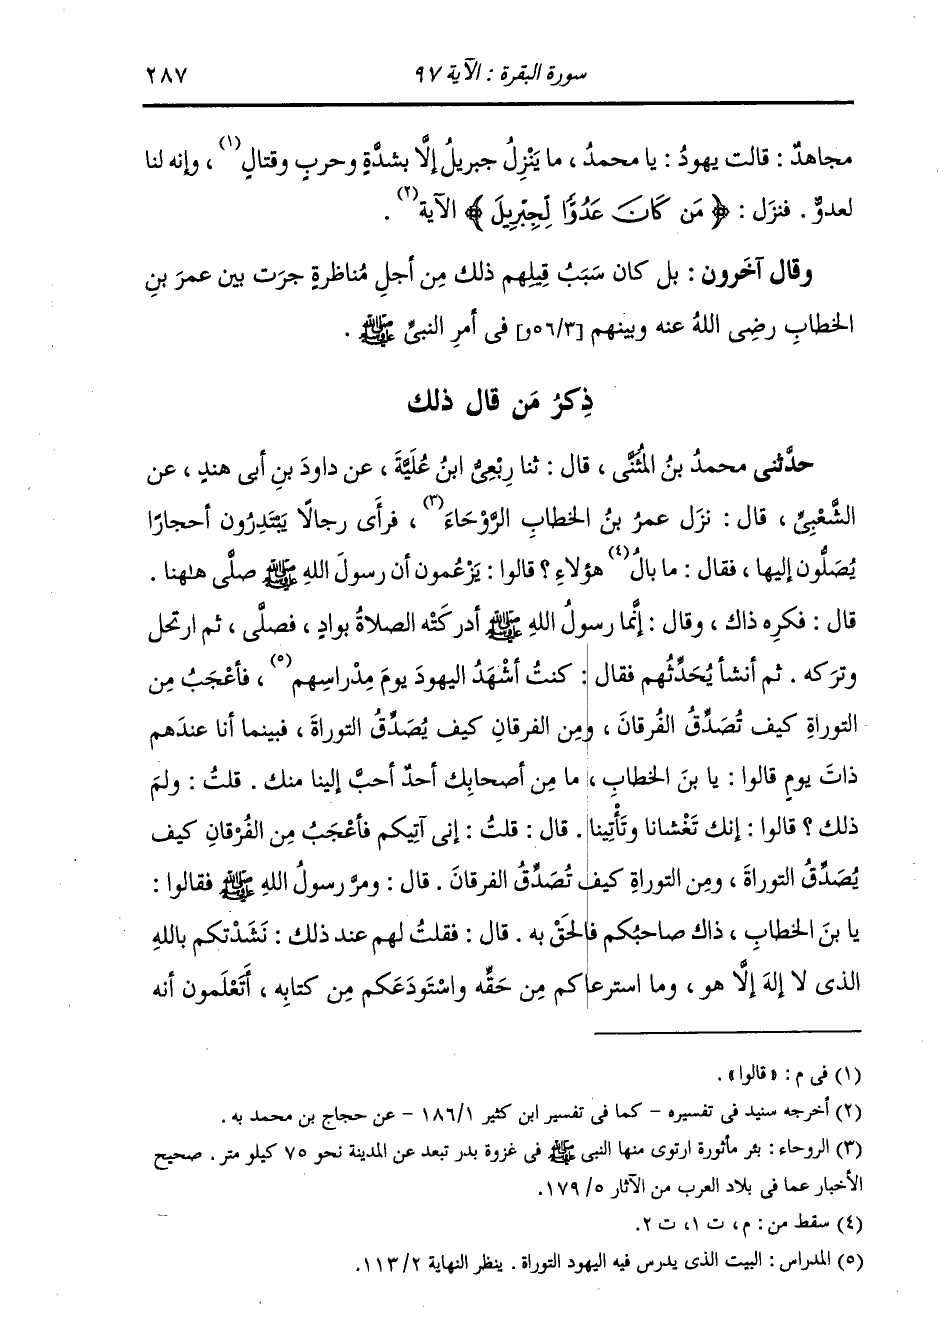 سورة البقرة : الآية ٩٧ ٢٨٧
مجاهدٌ : قالت يهودُ : يا محمدُ ، ما يَنْزِلُ جبريلُ إلَّا بشدَّةٍ وحربٍ وقتالٍ(١) ، وإنه لنا
لعدوٌّ . فنزَل : ﴿ مَن كَانَ عَدُوًّا لِّجِبْرِيلَ ﴾ الآية(٢) .
وقال آخَرون : بل كان سَبَبُ قِيلِهم ذلك مِن أجلِ مُناظرةٍ جرَت بين عمرَ بنِ
الخطابِ رضِى اللهُ عنه وبينهم [٥٦/٣و] فى أمرِ النبىِّ ﷺ .
ذِكرُ مَن قال ذلك
حدَّثنى محمدُ بنُ المُثَنَّى ، قال : ثنا رِبْعِىُّ ابنُ عُلَيَّةَ ، عن داودَ بنِ أبى هندٍ ، عن
الشَّعْبِىِّ ، قال : نزَل عمرُ بنُ الخطابِ الرَّوْحَاءَ(٣) ، فرأَى رجالًا يَبْتَدِرُون أحجارًا
يُصَلُّون إليها ، فقال : ما بالُ(٤) هؤلاءِ ؟ قالوا : يَزْعُمون أن رسولَ اللهِ ﷺ صلَّى هلهنا .
قال : فكرِه ذاك ، وقال : إنَّما رسولُ اللهِ ﷺ أدركَتْه الصلاةُ بوادٍ ، فصلَّى ، ثم ارتحل
وترَكه . ثم أنشأ يُحَدِّثُهم فقال : كنتُ أشْهَدُ اليهودَ يومَ مِدْراسِهم(٥) ، فأعْجَبُ مِن
التوراةِ كيف تُصَدِّقُ الفُرقانَ ، ومِن الفرقانِ كيف يُصَدِّقُ التوراةَ ، فبينما أنا عندَهم
ذاتَ يومٍ قالوا : يا بنَ الخطابِ ، ما مِن أصحابِك أحدٌ أحبَّ إلينا منك . قلتُ : ولمَ
ذلك ؟ قالوا : إنك تَغْشانا وتَأْتِينا . قال : قلتُ : إنى آتِيكم فأعْجَبُ مِن الفُرْقانِ كيف
يُصَدِّقُ التوراةَ ، ومِن التوراةِ كيف تُصَدِّقُ الفرقانَ . قال : ومرَّ رسولُ اللهِ ﷺ فقالوا :
يا بنَ الخطابِ ، ذاك صاحبُكم فالحَقْ به . قال : فقلتُ لهم عند ذلك : نَشَدْتكم باللهِ
الذى لا إلهَ إلَّا هو ، وما استرعاكم مِن حَقِّه واسْتودَعَكم مِن كتابِه ، أتَعْلَمون أنه
(١) فى م : «قالوا» .
(٢) أخرجه سنيد فى تفسيره - كما فى تفسير ابن كثير ١٨٦/١ - عن حجاج بن محمد به .
(٣) الروحاء : بئر مأثورة ارتوى منها النبى ﷺ فى غزوة بدر تبعد عن المدينة نحو ٧٥ كيلو متر . صحيح
الأخبار عما فى بلاد العرب من الآثار ٥/ ١٧٩.
(٤) سقط من : م، ت ١، ت ٢.
(٥) المدراس : البيت الذى يدرس فيه اليهود التوراة . ينظر النهاية ٢/ ١١٣.